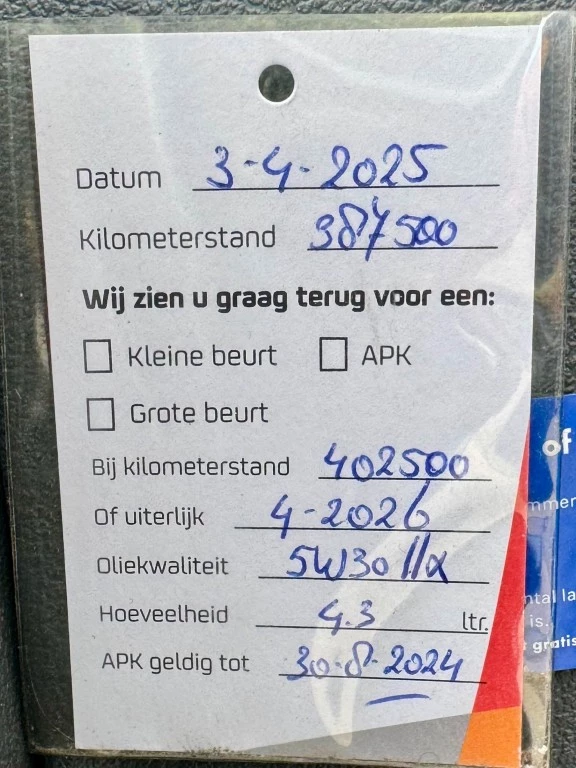 Datum 3-4-2025
Kilometerstand 387500
Wij zien u graag terug voor een:
Kleine beurt APK
Grote beurt
Bij kilometerstand 402500
Of uiterlijk 4-2026
Oliekwaliteit 5W30 lla
Hoeveelheid 4.3 ltr.
APK geldig tot 30-8-2024
of
mmer
ntal la
is..
gratis